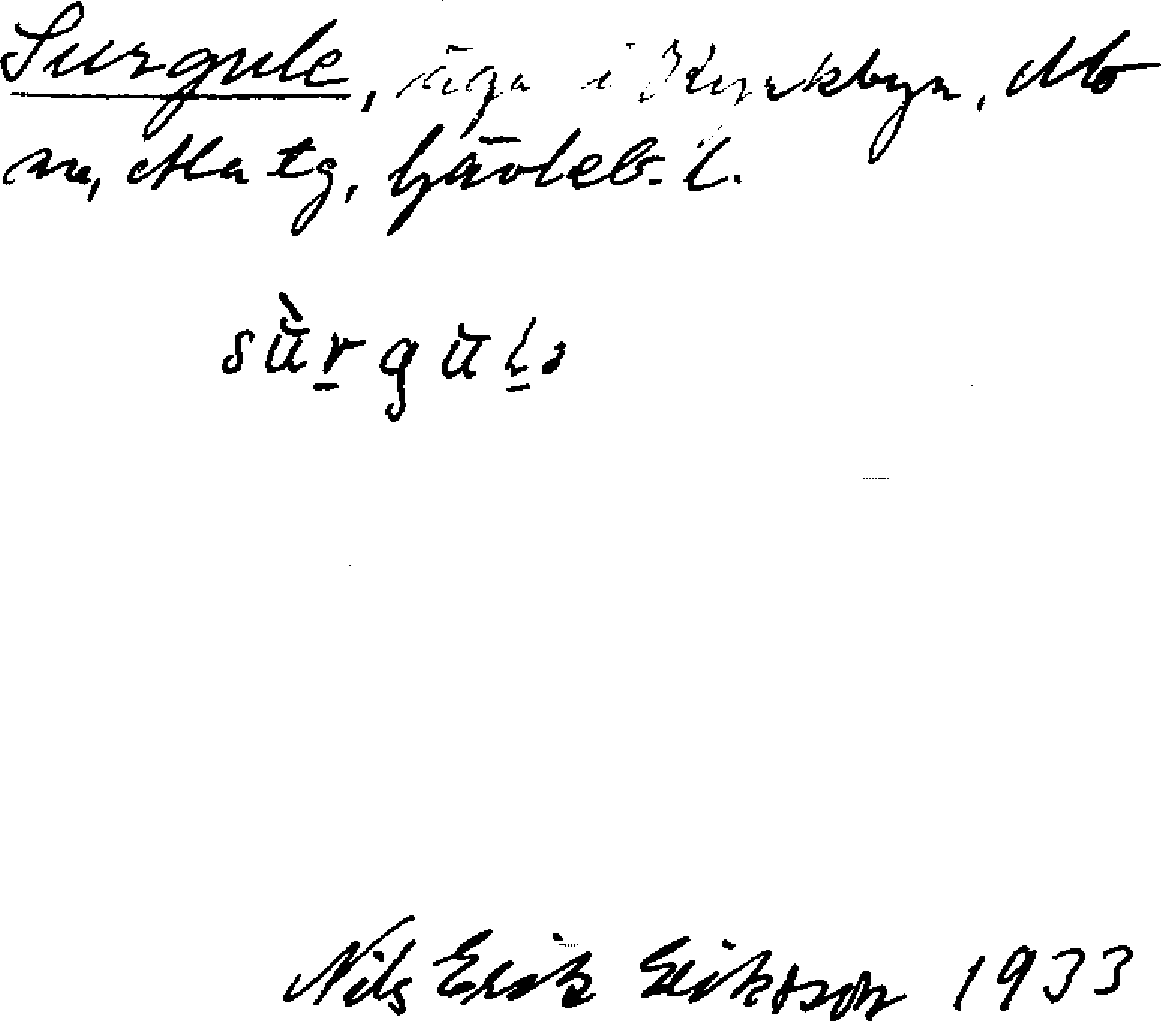 Surgule, äga i Kyrkbyn, Mo
sn, Ala tg, Gävleb. l.
sùrgulə
Nils Erik Eriksson 1933